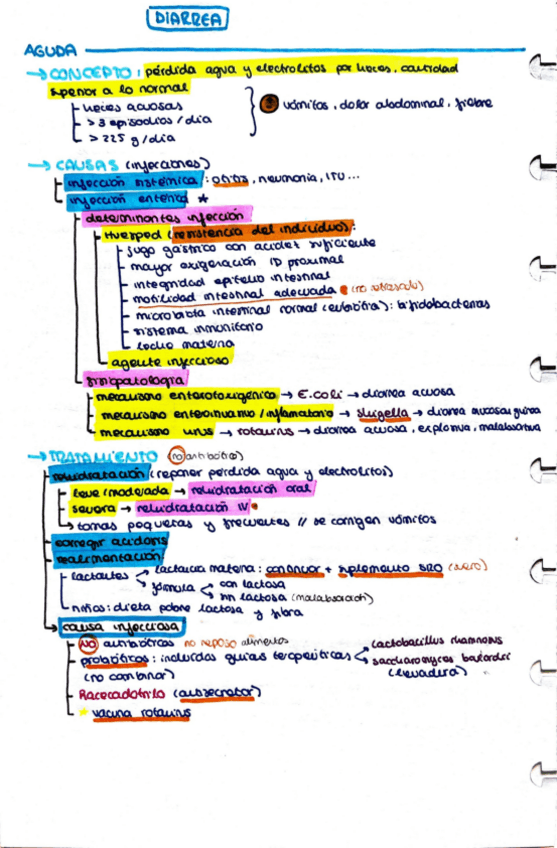 DIARREA
AGUDA
→ CONCEPTO: pérdida agua y electrolitos por heces, cantidad
superior a lo normal
heces acuosas
> 3 episodios/día
> 225 g/día
vómitos, dolor abdominal, fiebre
→ CAUSAS (infecciones)
infección sistémica: otitis, neumonía, ITU...
infección enteral *
determinantes infección
Huésped (resistencia del individuo):
jugo gástrico con acidez suficiente
mayor oxigenación ID proximal
integridad epitelio intestinal
motilidad intestinal adecuada (no retrasado)
microbiota intestinal normal (eubiótica): bifidobacterias
sistema inmunitario
leche materna
agente infeccioso
fisiopatología
mecanismo enterotoxigénico → E.coli → diarrea acuosa
mecanismo enteroinvasivo/inflamatorio → shigella → diarrea mucosanguinea
mecanismo virus → rotavirus → diarrea acuosa, explosiva, malabsortiva
→ TRATAMIENTO (no antibiótico)
rehidratación (reponer pérdida agua y electrolitos)
leve/moderada → rehidratación oral
severa → rehidratación IV
tomas pequeñas y frecuentes // se corrigen vómitos
corregir acidosis
realimentación
lactantes
lactancia materna: continuar + suplemento SRO (suero)
fórmula
con lactosa
sin lactosa (malabsorción)
niños: dieta pobre lactosa y fibra
→ causa infecciosa
NO antibióticos no reposo alimentos
probióticos: incluidas guías terapéuticas
lactobacillus rhamnosus
saccharomyces boulardii
(no combinar)
(levadura)
Racecadotrilo (antisecretor)
vacuna rotavirus